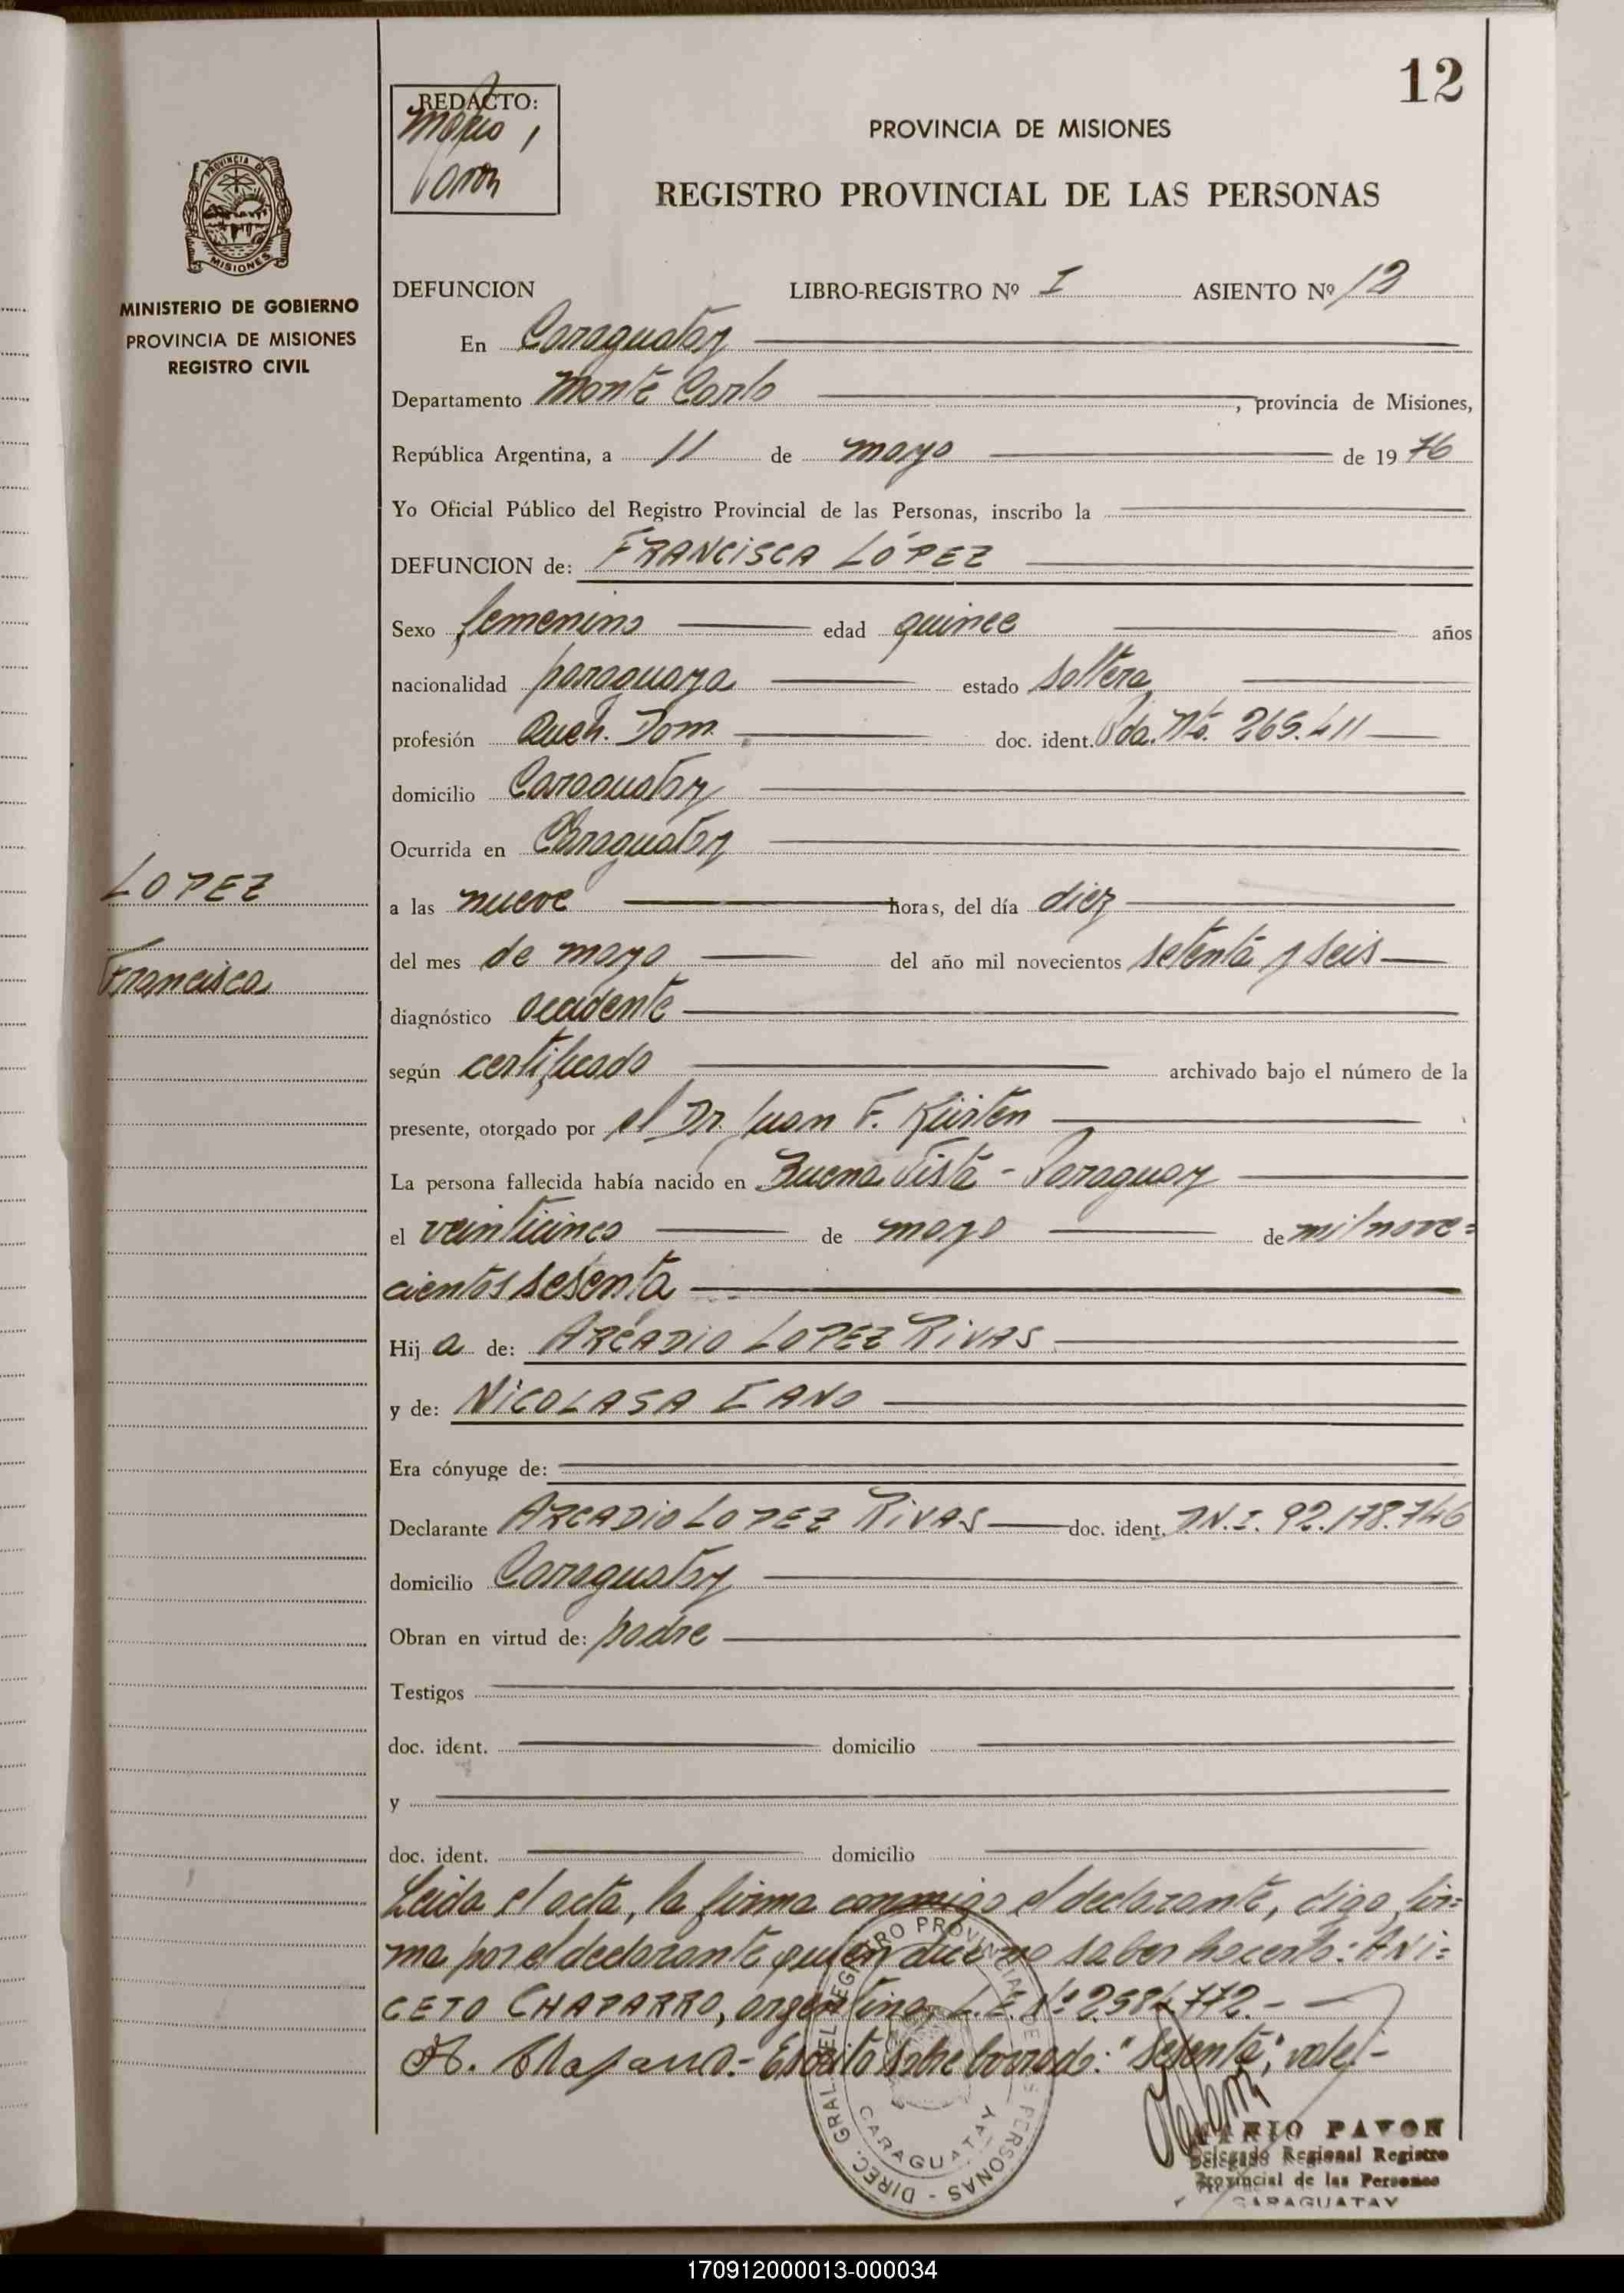 12
REDACTO:
Mario
Pavon
PROVINCIA DE MISIONES
REGISTRO PROVINCIAL DE LAS PERSONAS
PROVINCIA DE
MISIONES
MINISTERIO DE GOBIERNO
PROVINCIA DE MISIONES
REGISTRO CIVIL
DEFUNCION LIBRO-REGISTRO Nº I ASIENTO Nº 12
En Caraguatay
Departamento Monte Carlo, provincia de Misiones,
República Argentina, a 11 de mayo de 1976
Yo Oficial Público del Registro Provincial de las Personas, inscribo la
DEFUNCION de: FRANCISCA LÓPEZ
Sexo femenino edad quince años
nacionalidad paraguaya estado soltera
profesión Queh. Dom. doc. ident. Pda. Nº. 265.411
domicilio Caraguatay
Ocurrida en Caraguatay
LOPEZ
Francisca
a las nueve horas, del día diez
del mes de mayo del año mil novecientos setenta y seis
diagnóstico accidente
según certificado archivado bajo el número de la
presente, otorgado por el Dr. Juan F. Kürten
La persona fallecida había nacido en Buena Vista - Paraguay
el veinticinco de mayo de mil nove=
cientos sesenta
Hija de: ARCADIO LOPEZ RIVAS
y de: NICOLASA CANO
Era cónyuge de:
Declarante ARCADIO LOPEZ RIVAS doc. ident. D.N.I. 92.178.746
domicilio Caraguatay
Obran en virtud de: padre
Testigos
doc. ident. domicilio
y
doc. ident. domicilio
Leida el acta, la firma conmigo el declarante, digo, fir=
ma por el declarante quien dice no saber hacerlo: ANI=
CETO CHAPARRO, argentino, L.E. Nº 2.584.772.-
Escrito sobre borrado: "sesenta"; vale.-
DIREC. GRAL. DEL REGISTRO PROVINCIAL DE LAS PERSONAS -
CARAGUATAY
MARIO PAVON
Delegado Regional Registro
Provincial de las Personas
CARAGUATAY
170912000013-000034